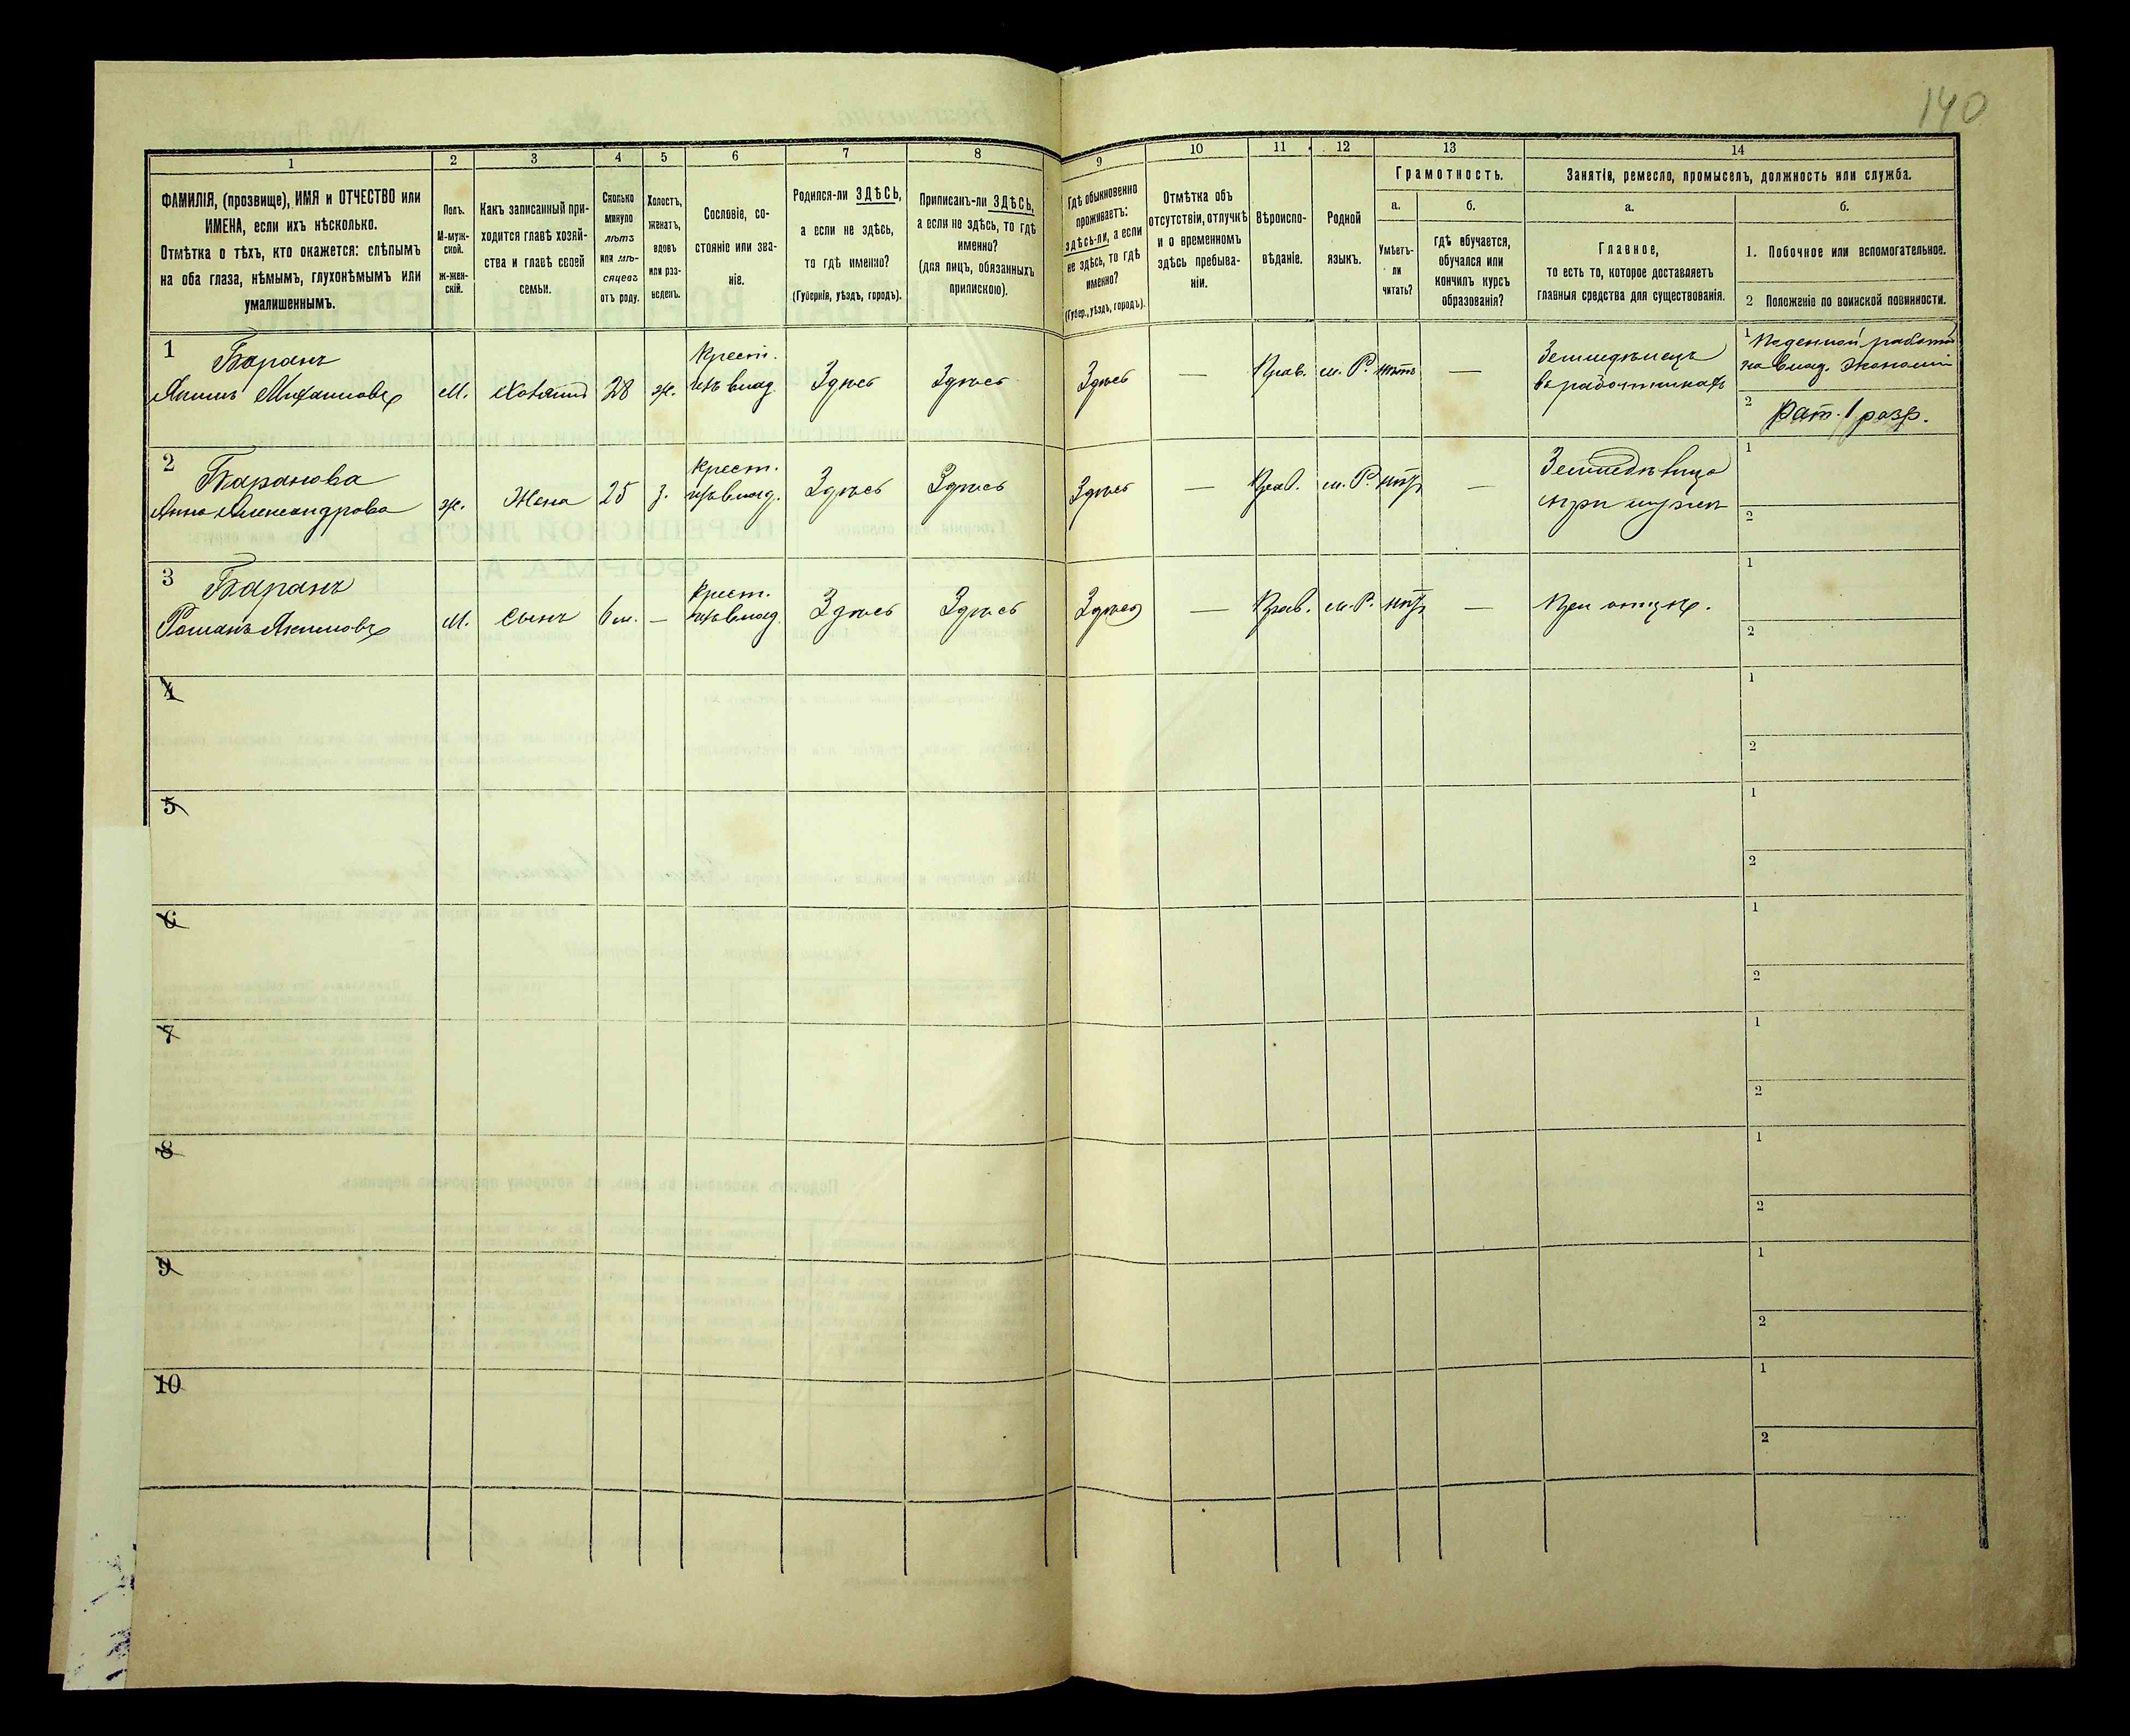 140
1
2
3
4
5
6
7
8
9
10
11
12
13
14
ФАМИЛІЯ, (прозвище), ИМЯ и ОТЧЕСТВО или
ИМЕНА, если ихъ нѣсколько.
Отмѣтка о тѣхъ, кто окажется: слѣпымъ
на оба глаза, нѣмымъ, глухонѣмымъ или
умалишеннымъ.
Полъ.
М-муж-
ской.
Ж-жен-
скій.
Какъ записанный при-
ходится главѣ хозяй-
ства и главѣ своей
семьи.
Сколько
минуло
лѣтъ
или мѣ-
сяцевъ
отъ роду.
Холостъ,
женатъ,
вдовъ
или раз-
веденъ.
Сословіе, со-
стояніе или зва-
ніе.
Родился-ли ЗДѢСЬ,
а если не здѣсь,
то гдѣ именно?
(Губернія, уѣздъ, городъ).
Приписанъ-ли ЗДѢСЬ,
а если не здѣсь, то гдѣ
именно?
(для лицъ, обязанныхъ
припискою).
Гдѣ обыкновенно
проживаетъ:
здѣсь-ли, а если
не здѣсь, то гдѣ
именно?
(Губер., уѣздъ, городъ).
Отмѣтка объ
отсутствіи, отлучкѣ
и о временномъ
здѣсь пребыва-
ніи.
Вѣроиспо-
вѣданіе.
Родной
языкъ.
Грамотность.
а.
Умѣетъ-
ли
читать?
б.
гдѣ обучается,
обучался или
кончилъ курсъ
образованія?
Занятія, ремесло, промыселъ, должность или служба.
а.
Главное,
то есть то, которое доставляетъ
главныя средства для существованія.
б.
1. Побочное или вспомогательное.
2 Положеніе по воинской повинности.
1
Баранъ
Акимъ Михаиловъ
М.
Хозяинъ
28
ж.
Крест.
влад.
Здѣсь
Здѣсь
Здѣсь
—
Прав.
м. Р.
нѣтъ
—
Земледѣлецъ
въ работникахъ
1 Поденной работы
на влад. экономіи
2 Рат. 1 разр.
2
Баранова
Анна Александрова
ж.
Жена
25
з.
Крест.
влад.
Здѣсь
Здѣсь
Здѣсь
—
Прав.
м. Р.
нѣтъ
—
Земледѣлица
при мужѣ
1
2
3
Баранъ
Романъ Акимовъ
М.
Сынъ
6 м.
—
Крест.
влад.
Здѣсь
Здѣсь
Здѣсь
—
Прав.
м. Р.
нѣтъ
—
При отцѣ.
1
2
4
1
2
5
1
2
6
1
2
7
1
2
8
1
2
9
1
2
10
1
2